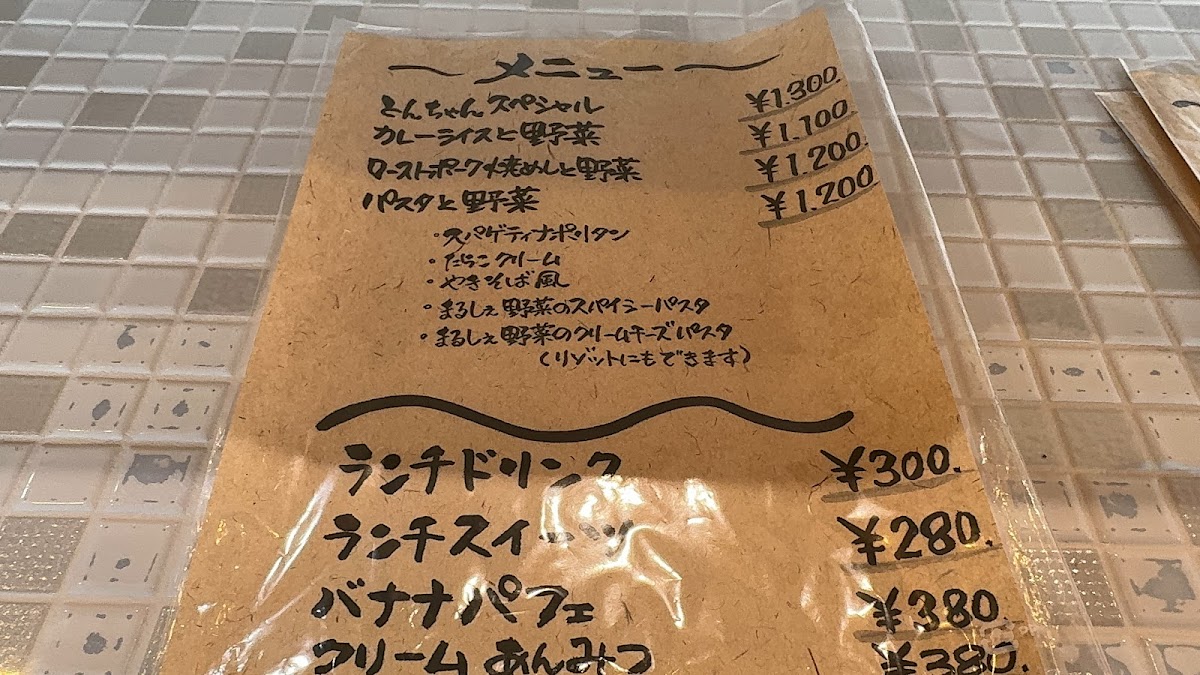 〜メニュー〜
とんちゃんスペシャル ¥1.300.
カレーライスと野菜 ¥1.100.
ローストポーク焼めしと野菜 ¥1.200.
パスタと野菜 ¥1.200
・スパゲティナポリタン
・たらこクリーム
・やきそば風
・まるしぇ野菜のスパイシーパスタ
・まるしぇ野菜のクリームチーズパスタ
(リゾットにもできます)
ランチドリンク ¥300.
ランチスイーツ ¥280.
バナナパフェ ¥380
クリームあんみつ ¥380.